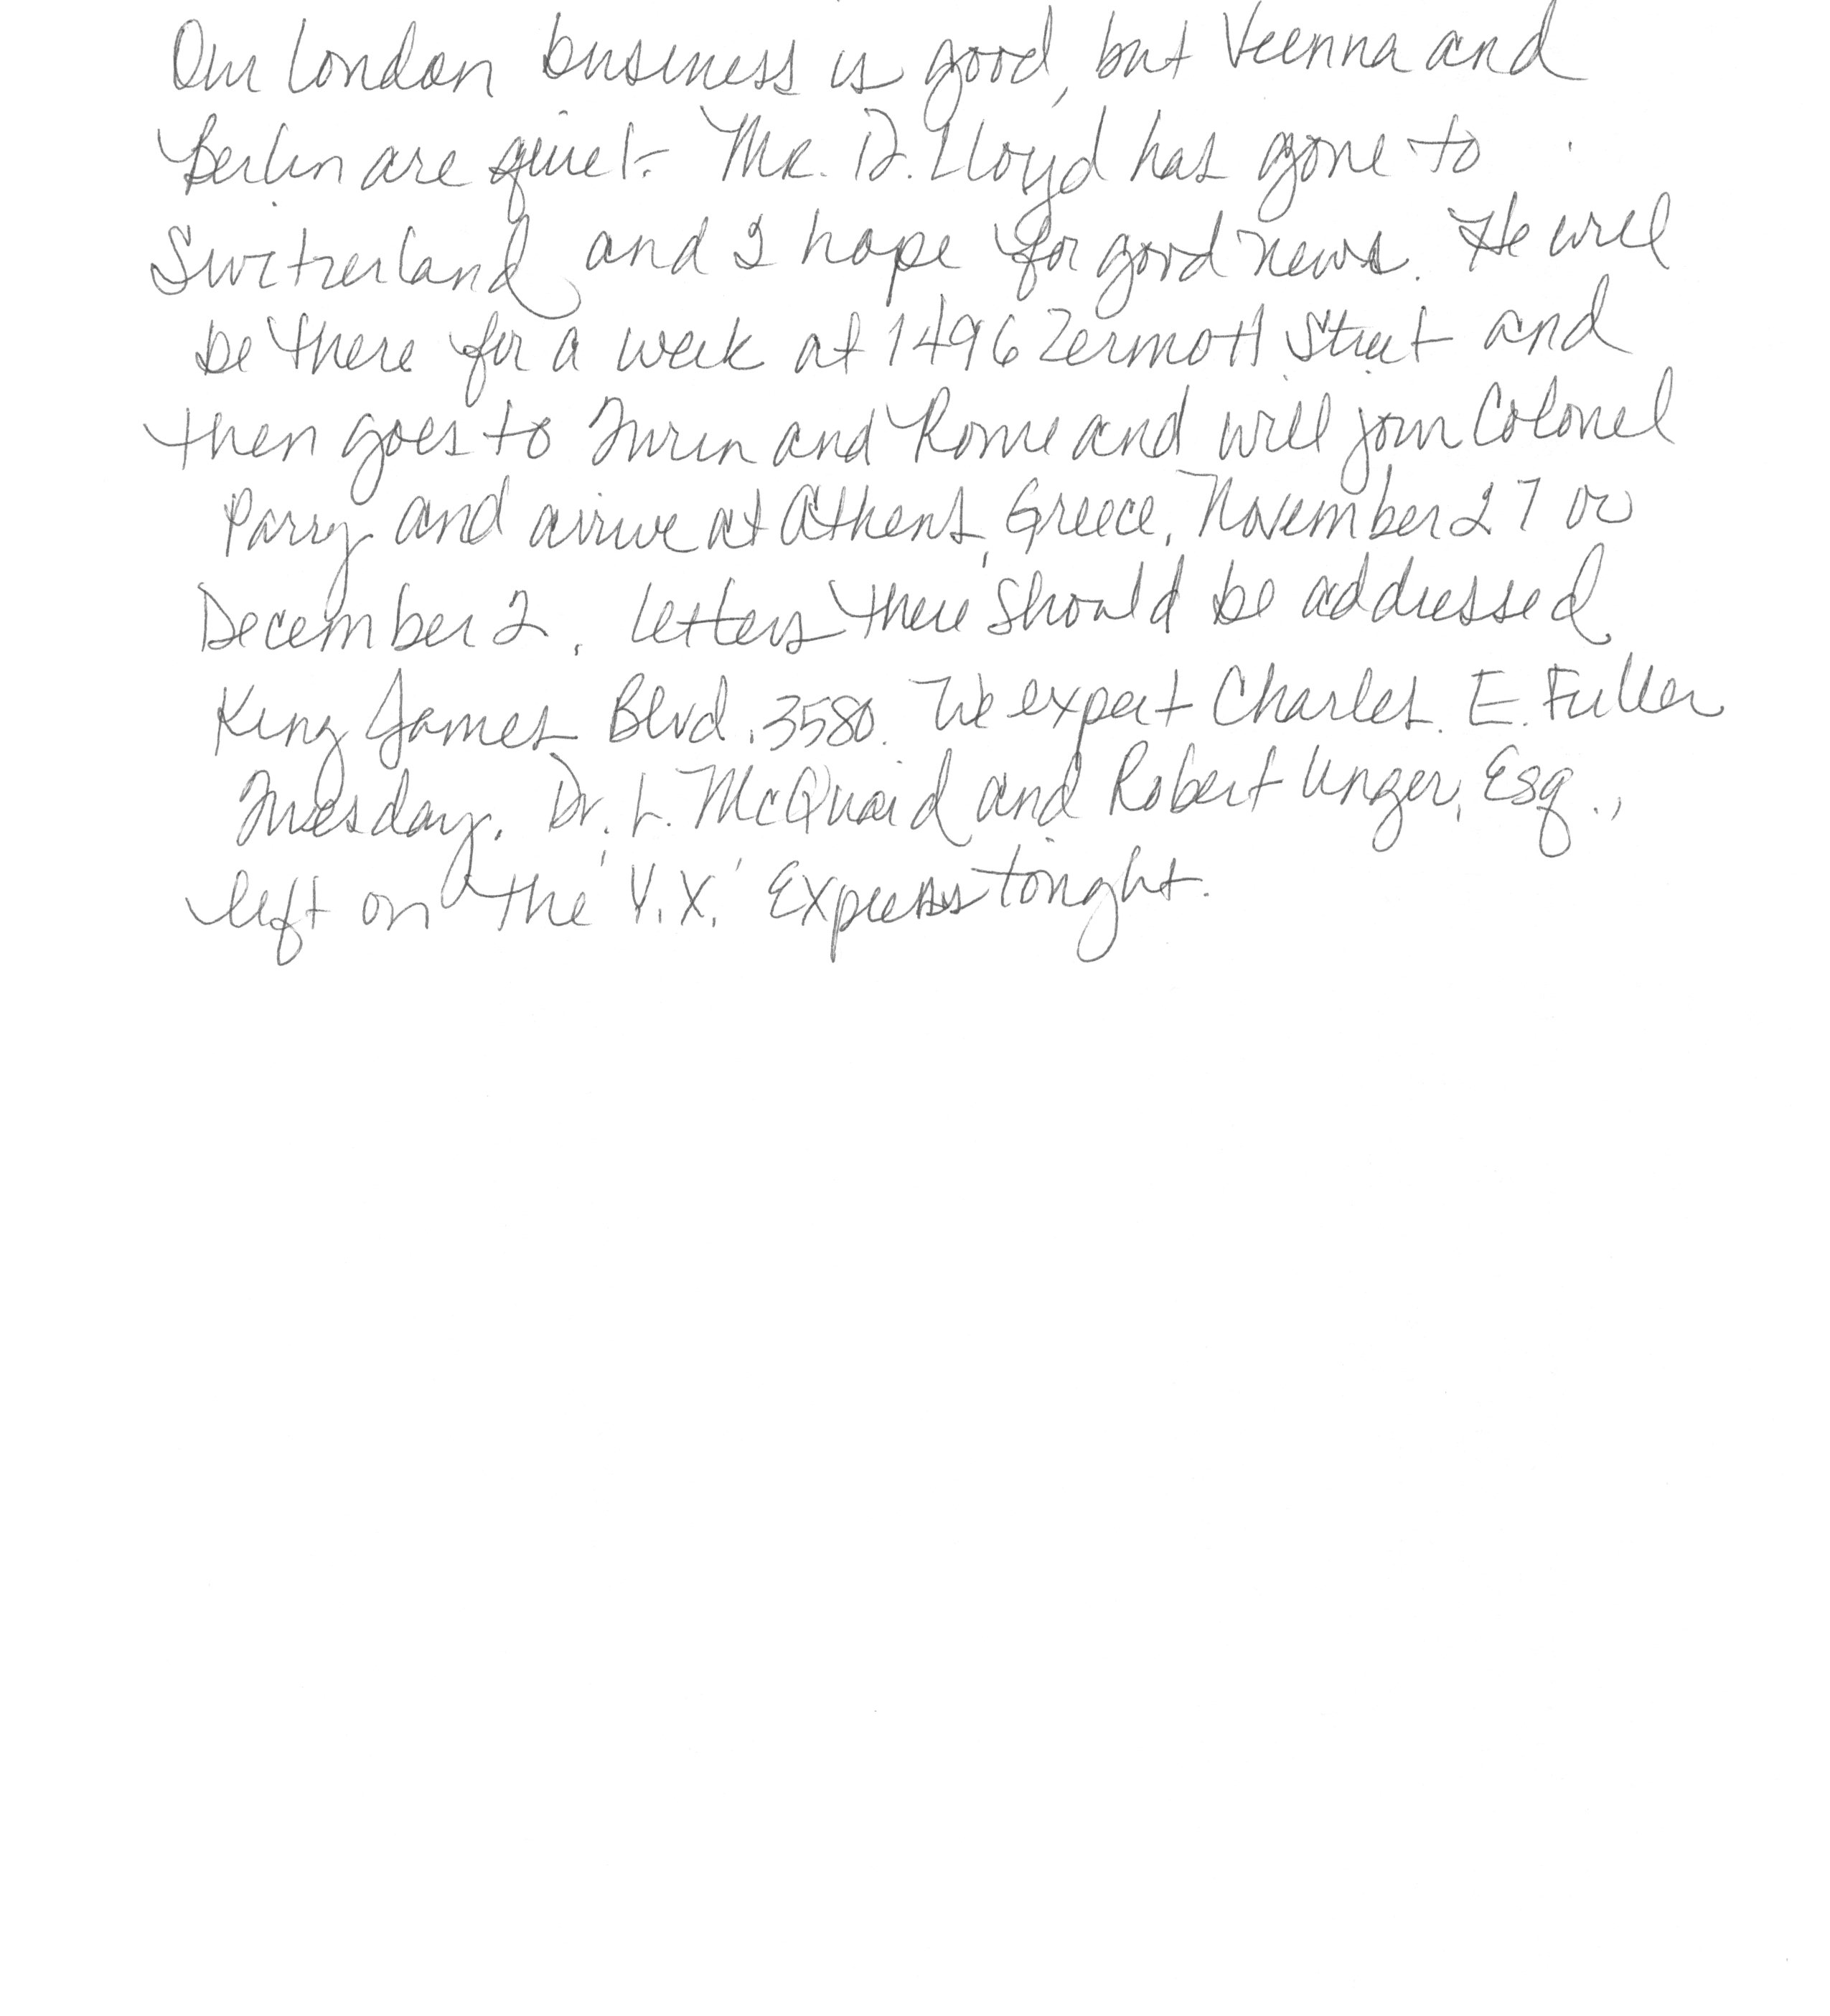 Our London business is good, but Vienna and
Berlin are quiet. Mr. D. Lloyd has gone to
Switzerland and I hope for good news. He will
be there for a week at 1496 Zermott Street and
then goes to Turin and Rome and will join Colonel
Parry and arrive at Athens, Greece, November 27 or
December 2. Letters there should be addressed
King James Blvd. 3580. We expect Charles E. Fuller
Tuesday. Dr. L. McQuaid and Robert Unger, Esq.,
left on the 'Y.X.' Express tonight.